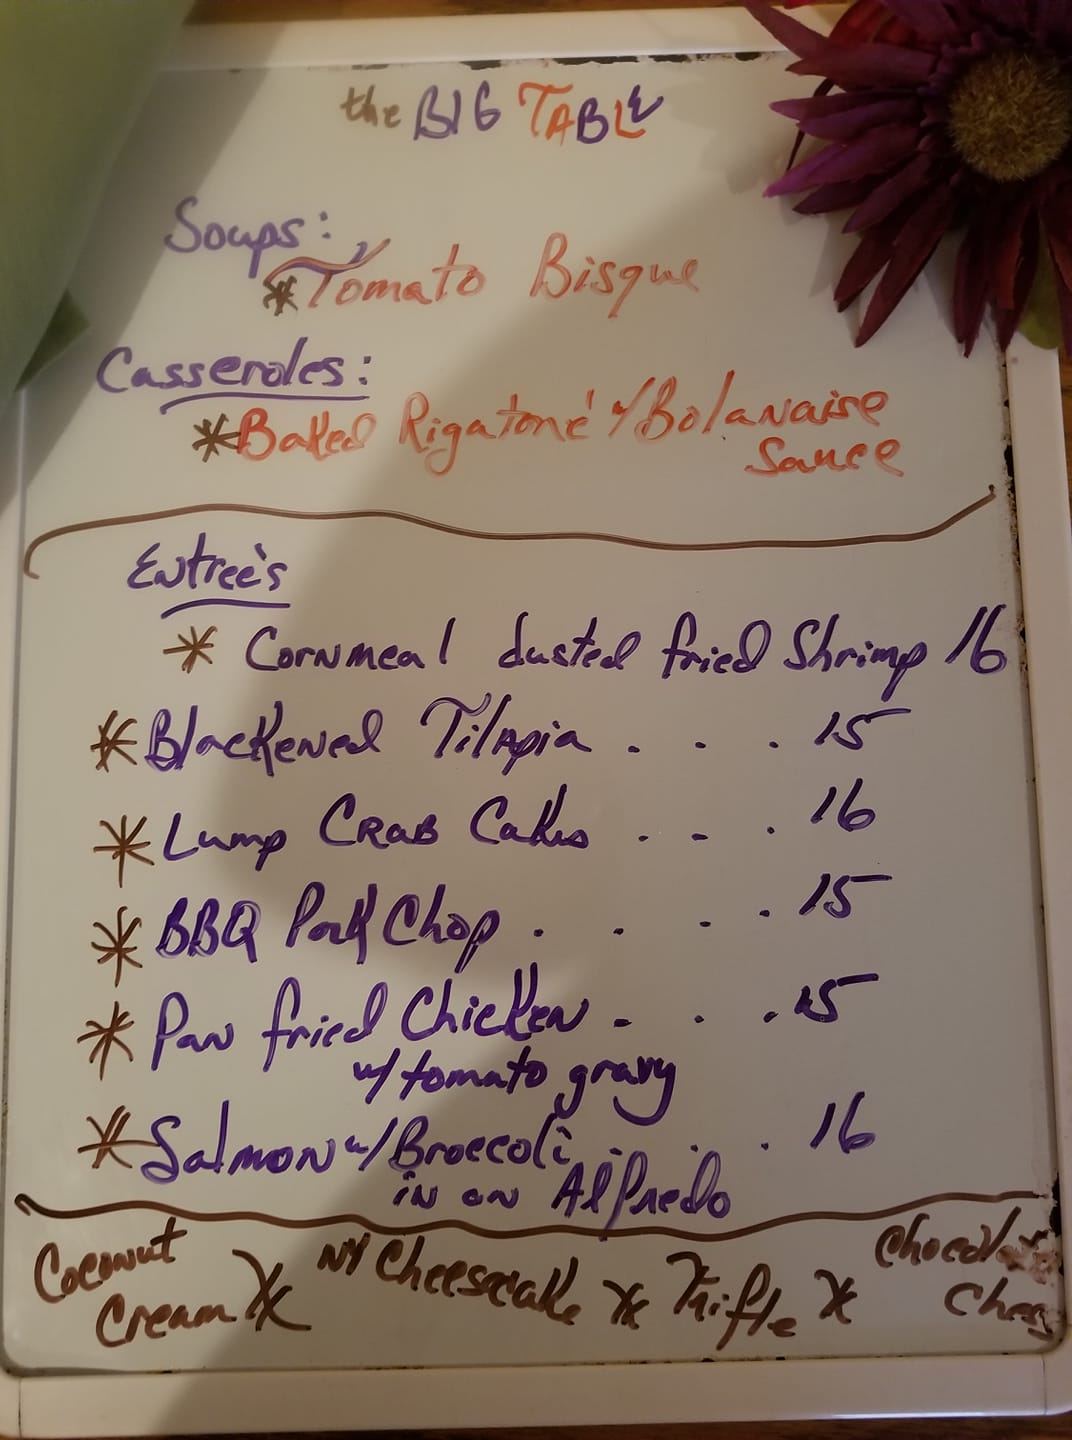 the BIG TABLE
Soups:
* Tomato Bisque
Casseroles:
* Baked Rigatone' w/Bolanaise
Sauce
Entree's
* Cornmeal dusted fried Shrimp 16
* Blackened Tilapia . . . 15
* Lump CRAB Cakes . . . 16
* BBQ Pork Chop . . . . 15
* Pan fried Chicken . . . 15
w/tomato gravy
* Salmon w/Broccoli . . . 16
in an Alfredo
Coconut
Cream * NY Cheesecake * Trifle * Chocolate
Chess